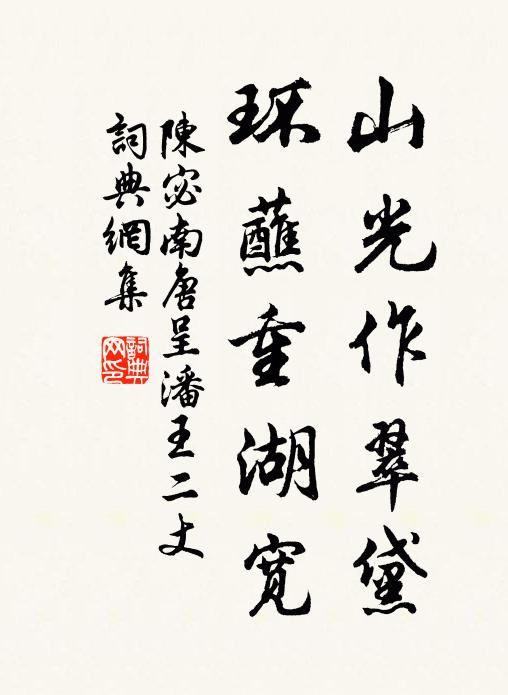 山光作翠黛
环蘸重湖寬
陳宓南唐呈潘王二丈
詞典網集
詞典网印